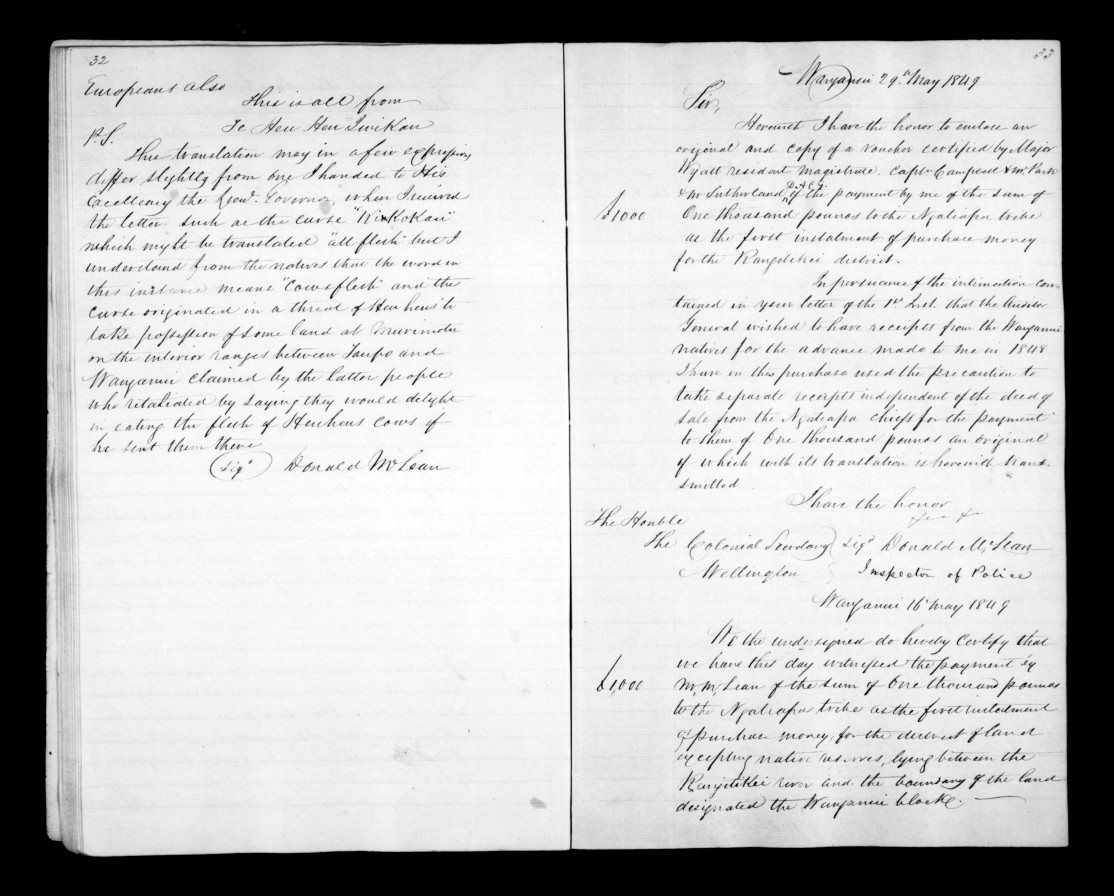 32
Europeans also
This is all from
Te Heu Heu Iwikau
P.S.
The translation may in a few expressions
differ slightly from one I handed to His
Excellency the Govr. Governor, when I received
the letter such as the curse "Kikokau"
which might be translated "all flesh" but I
understand from the natives that the word in
this instance means "Cowsflesh" and the
curse originated in a threat of Heu heus to
take possession of some land at Murimotu
on the interior ranges between Taupo and
Wanganui claimed by the latter people
who retaliated by saying they would delight
in eating the flesh of Heuheus cows if
he sent them there
(sigd) Donald McLean
33
Wanganui 29th May 1849
Sir,
Herewith I have the honor to enclose an
original and copy of a voucher certified by Major
Wyatt resident magistrate, Captn Campbell & Mr Park
& Mr Sutherland D.A.C.G. of the payment by me of the sum of
£1000 One thousand pounds to the Ngatiapa tribe
as the first instalment of purchase money
for the Rangitikei district.
In persuance of the intimation con-
tained in your letter of the 1st Inst. that the Auditor
General wished to have receipts from the Wanganui
natives for the advance made to me in 1848
I have in this purchase used the precaution to
take separate receipts independent of the deed of
sale from the Ngatiapa chiefs for the payment
to them of One thousand pounds an original
of which with its translation is herewith trans-
smitted
I have the honor
&c &c
The Honble
The Colonial Secretary sigd Donald McLean
Wellington Inspector of Police
Wanganui 16th May 1849
We the undersigned do hereby Certify that
we have this day witnessed the payment by
£1,000 Mr McLean of the sum of One thousand pounds
to the Ngatiapa tribe as the first instalment
of purchase money, for the district of land
excepting native reserves, lying between the
Rangitikei river and the boundary of the land
designated the Wanganui block.